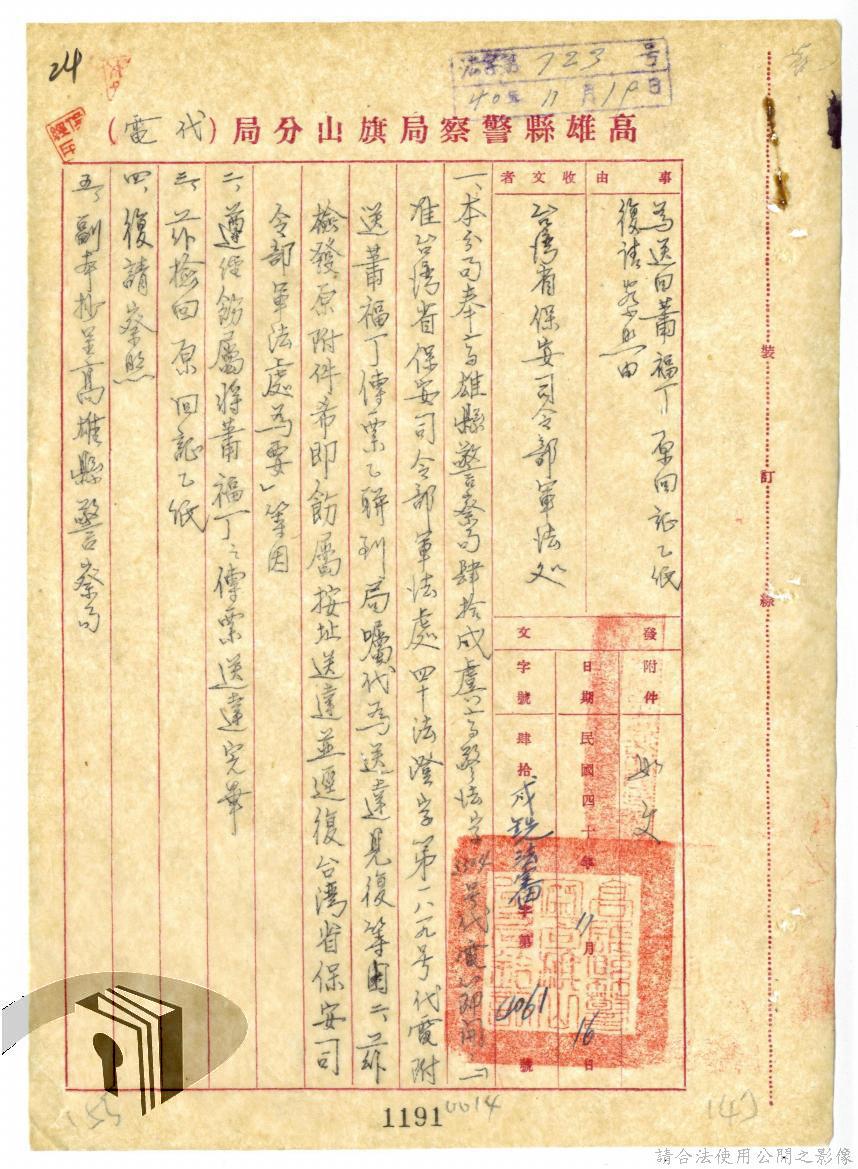 24
法字第723号
40年11月19日
高雄縣警察局旗山分局(代電)
事由
為送回蕭福丁原回証乙紙
復請察照由
收文者
台湾省保安司令部軍法処
發文
附件
如文
日期
民國四十年11月16日
字號
肆拾戌 法 字第4061號
一、本分局奉高雄縣警察局肆拾戌虞高警法字 号代電節開「一、
准台湾省保安司令部軍法處四十法澄字第一八九号代電附
送蕭福丁傳票乙聯到局囑代為送達見復等由二、茲
檢發原附件希即飭屬按址送達並逕復台湾省保安司
令部軍法處為要」等因
二、遵經飭屬將蕭福丁之傳票送達完畢
三、茲檢回原回証乙紙
四、復請察照
五、副本抄呈高雄縣警察局
裝訂線
1191
0014
155
147
請合法使用公開之影像